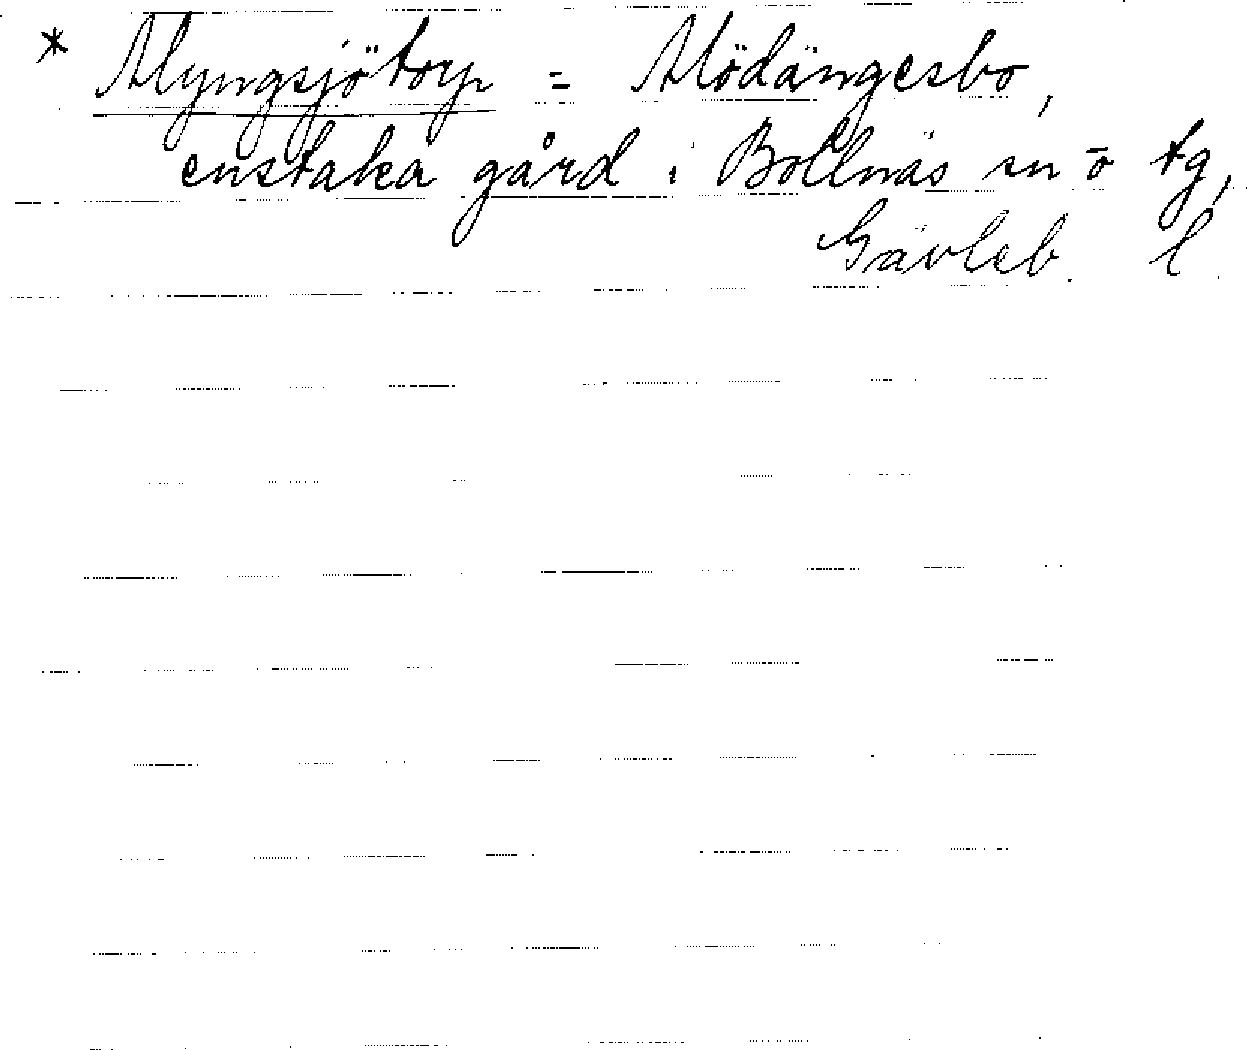 * Alyngsjötorp = Mödängesbo,
enstaka gård i Bollnäs sn o tg,
Gävleb. l.